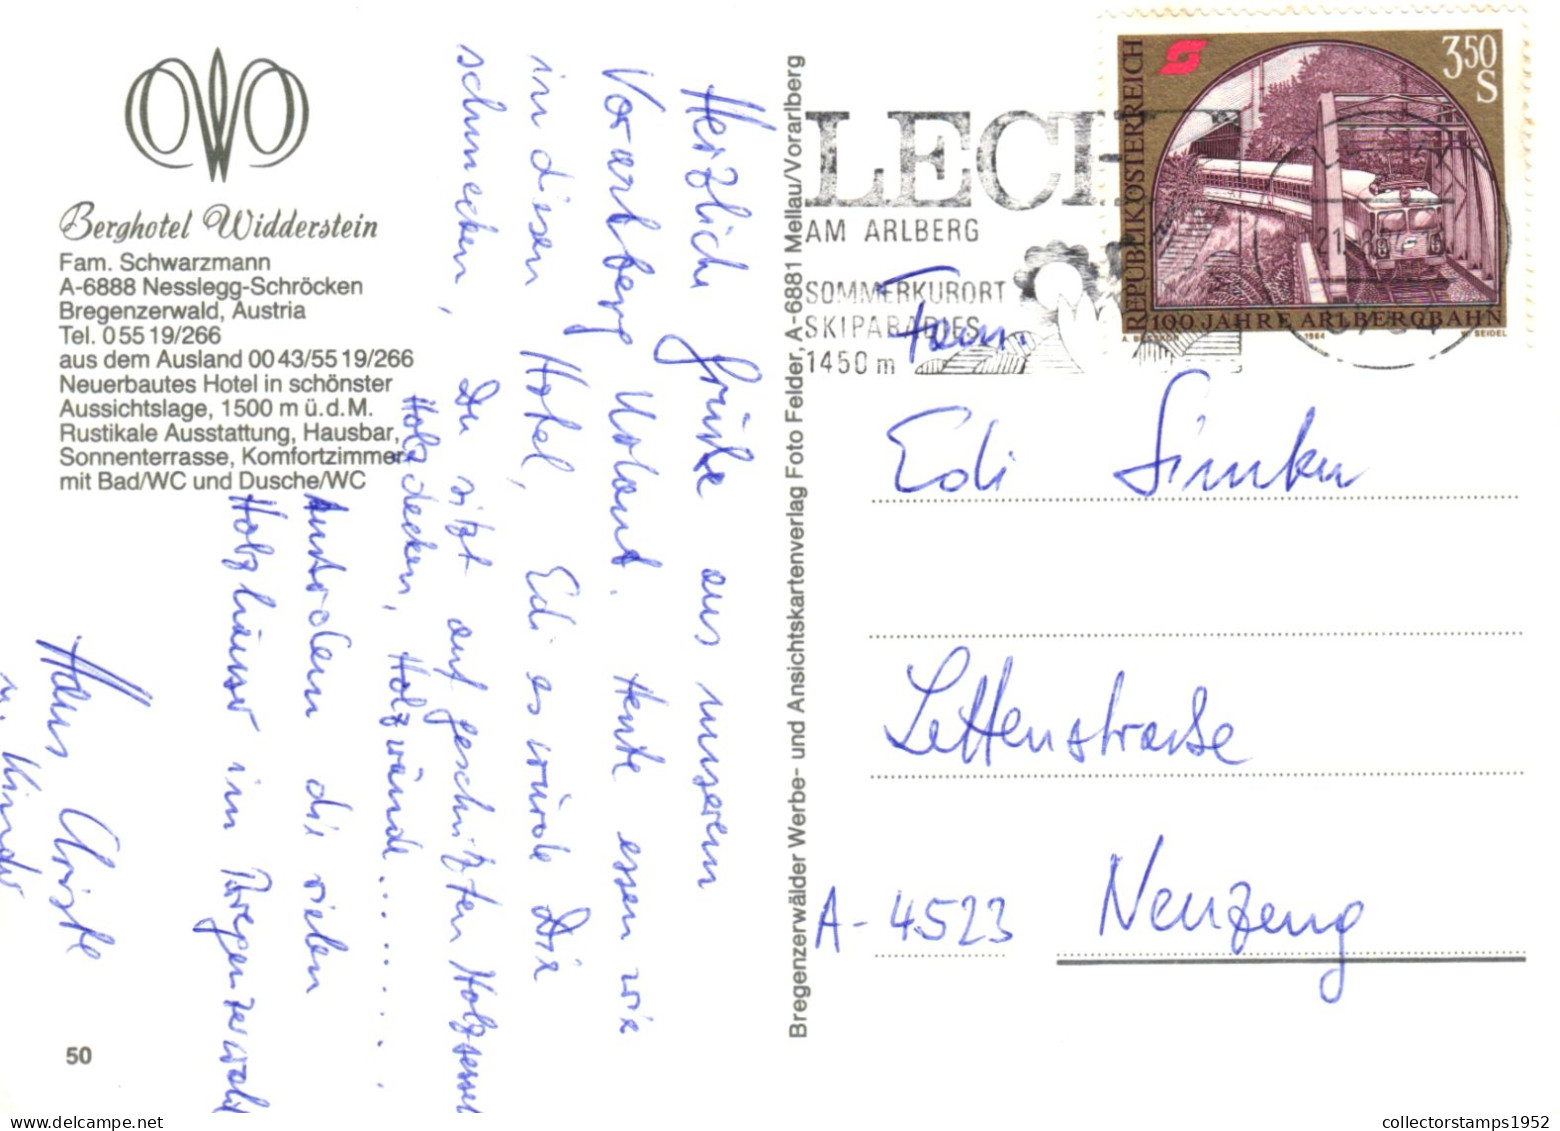 Berghotel Widderstein
Fam. Schwarzmann
A-6888 Nesslegg-Schröcken
Bregenzerwald, Austria
Tel. 0 55 19/266
aus dem Ausland 00 43/55 19/266
Neuerbautes Hotel in schönster
Aussichtslage, 1500 m ü.d.M.
Rustikale Ausstattung, Hausbar,
Sonnenterrasse, Komfortzimmer
mit Bad/WC und Dusche/WC
50
Herzliche Grüße aus unserem
Vorarlberg Urlaub. Heute essen wir
in diesen Hotel, Edi es würde Dir
schmecken, Du sitzt auf geschnitzten Holzsessel
Holzdecken, Holzwände..........
Außerdem die vielen
Holzhäuser im Bregenzerwald
Hans Christe
u. Kinder
Bregenzerwälder Werbe- und Ansichtskartenverlag Foto Felder, A-6881 Mellau/Vorarlberg
LECH
AM ARLBERG
SOMMERKURORT
SKIPARADIES
1450 m
REPUBLIK ÖSTERREICH
3.50
S
100 JAHRE ARLBERGBAHN
1984
W. SEIDEL
Fam.
Edi
Lettenstraße
A-4523 Neuzeug
collectorstamps1952